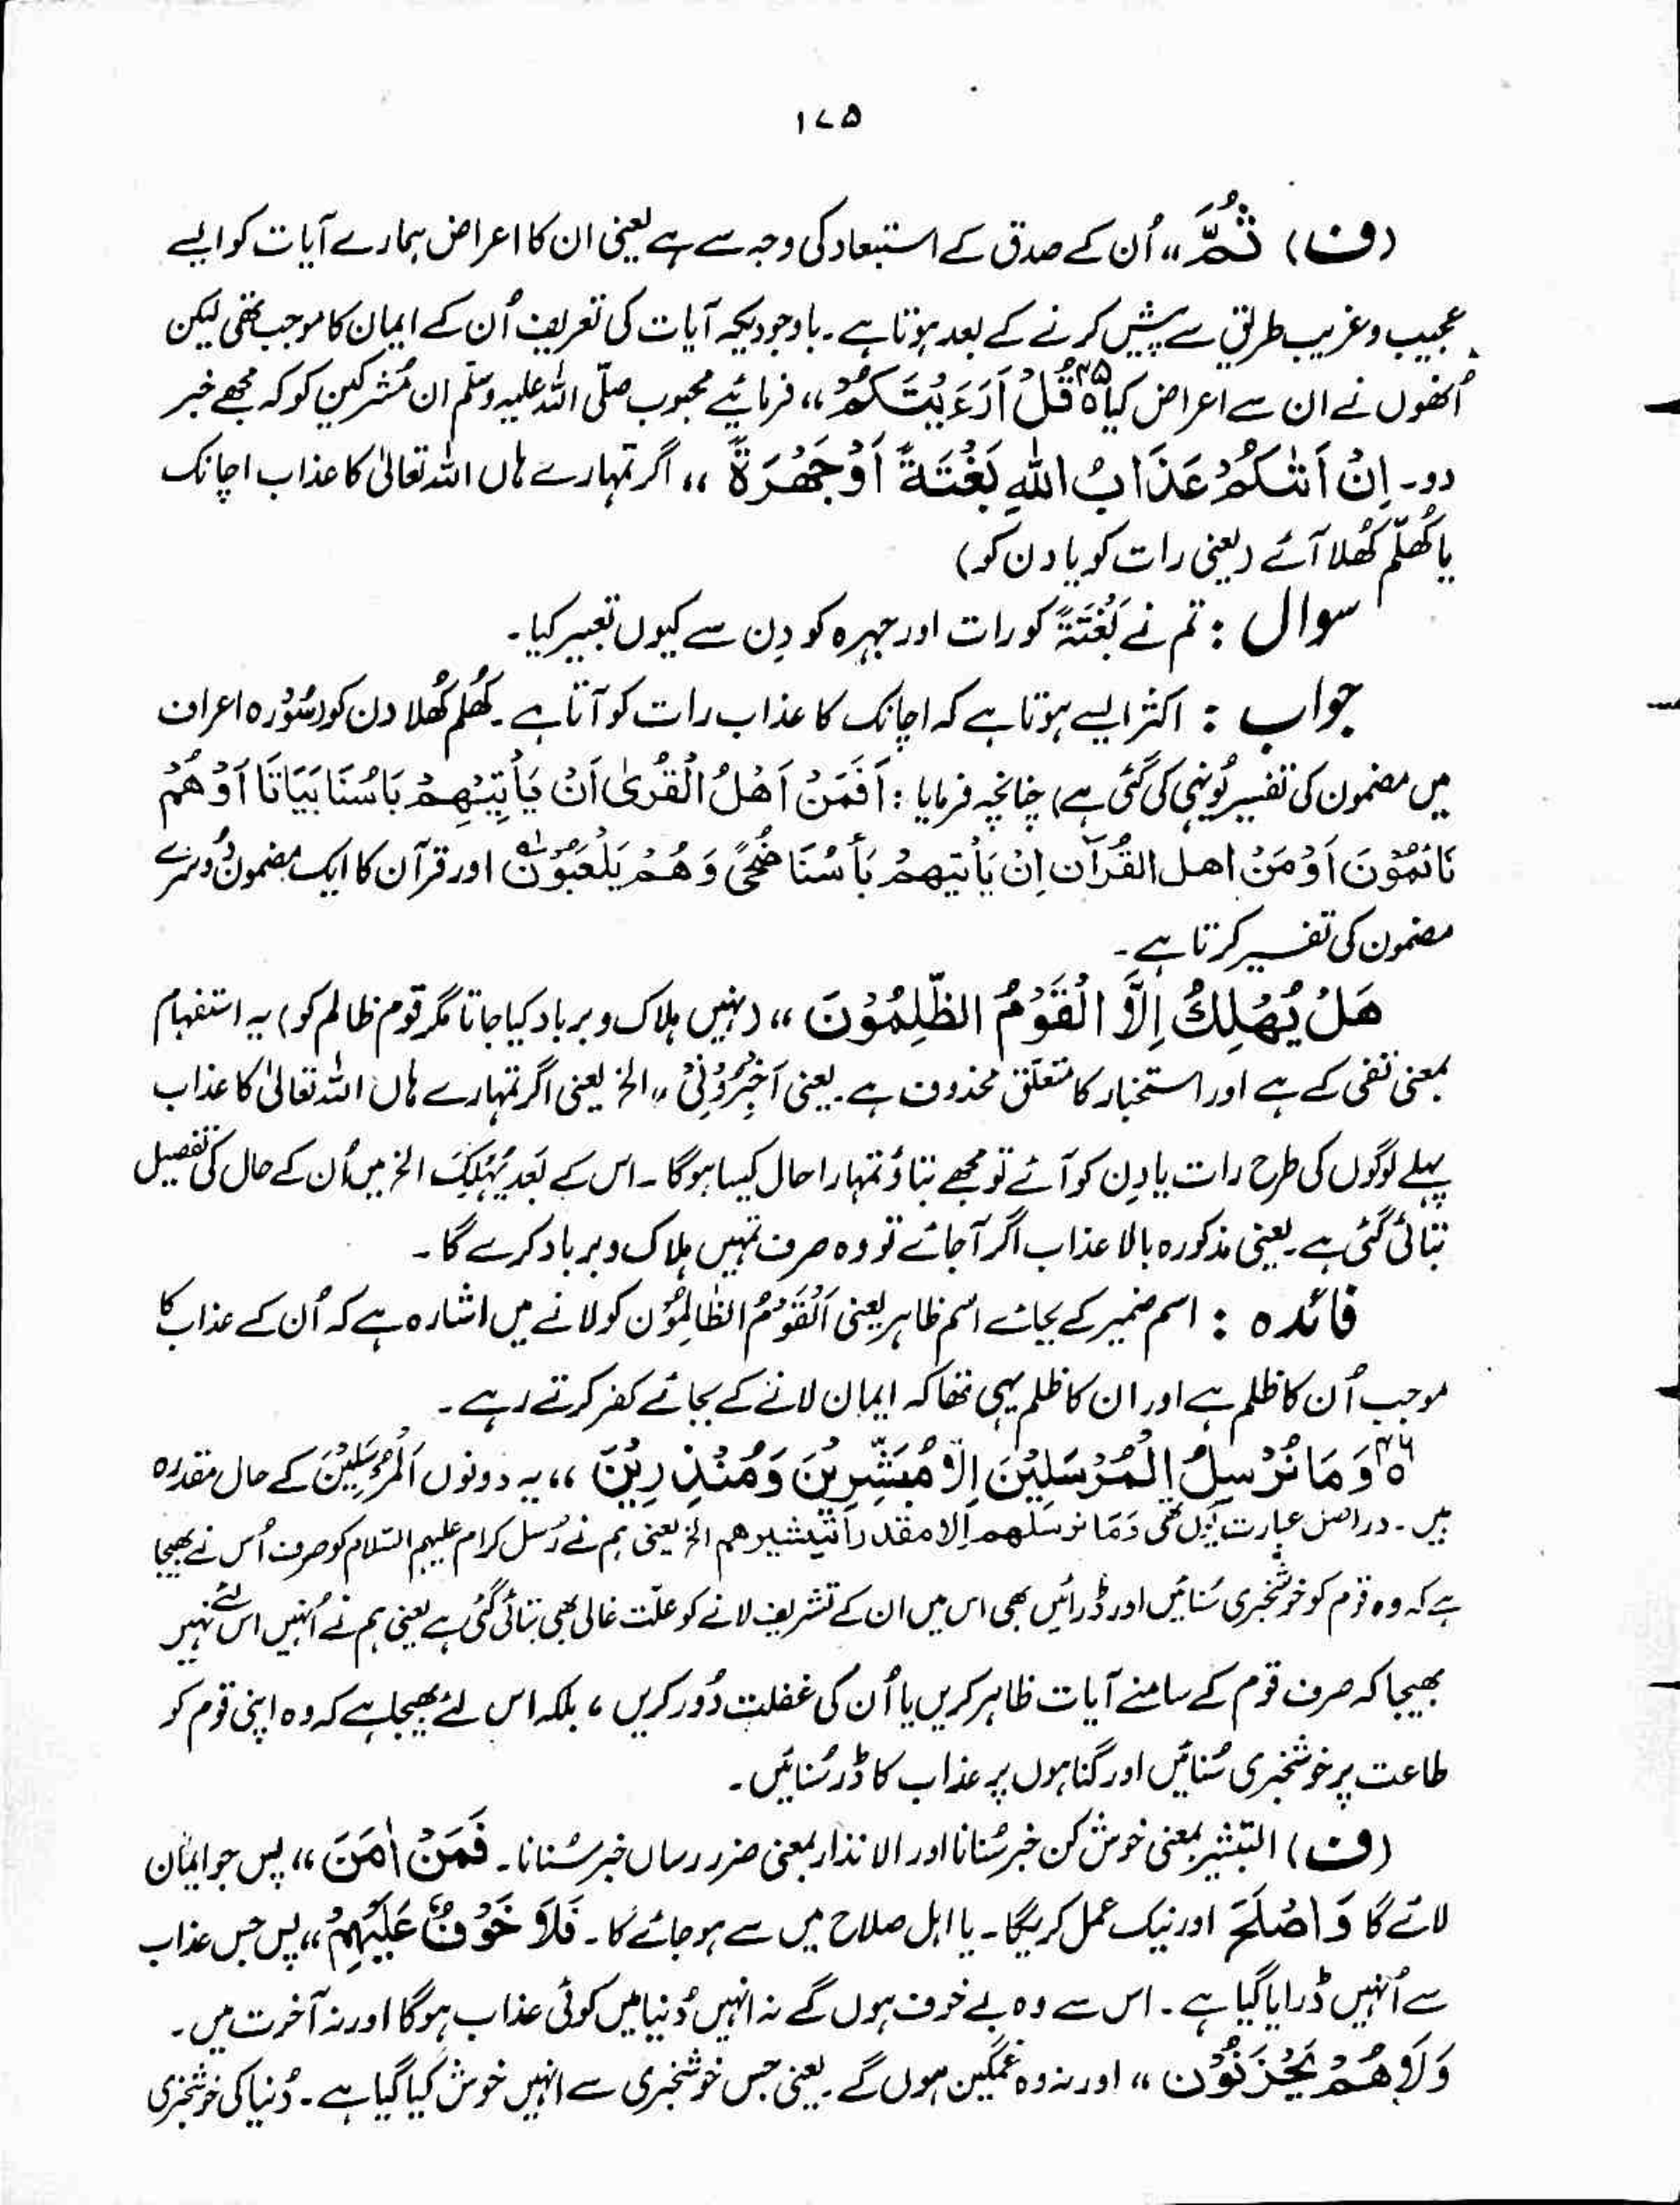 ۱۷۵
(ف) ثُمَّ ،، اُن کے صدق کے استبعاد کی وجہ سے ہے یعنی ان کا اعراض ہمارے آیات کو ایسے
عجیب و غریب طریق سے پیش کرنے کے بعد ہوتا ہے ۔ باوجودیکہ آیات کی تعریف اُن کے ایمان کا موجب تھی لیکن
اُنھوں نے ان سے اعراض کیا ۝۴۵ قُلْ اَرَءَیْتَکُمْ ،، فرمائیے محبوب صلّی اللہ علیہ وسلّم ان مُشرکین کو کہ مجھے خبر
دو ۔ اِنْ اَتٰىکُمْ عَذَابُ اللّٰہِ بَغْتَةً اَوْ جَھْرَةً ،، اگر تمہارے ہاں اللہ تعالیٰ کا عذاب اچانک
یا کُھلّم کُھلا آئے (یعنی رات کو یا دن کو)
سوال : تم نے بَغْتَةً کو رات اور جہرہ کو دِن سے کیوں تعبیر کیا ۔
جواب : اکثر ایسے ہوتا ہے کہ اچانک کا عذاب رات کو آتا ہے ۔ کُھلم کُھلا دن کو (سُوْرہ اعراف
میں مضمون کی تفسیر یُونہی کی گئی ہے) چنانچہ فرمایا : اَفَمَنْ اَھْلُ الْقُرٰی اَنْ یَأْتِیَہِمْ بَاسُنَا بَیَاتًا اَوْ ھُمْ
نَائمُوْنَ اَوْ مَنْ اھل القُرآن اِنْ یَأْتیھمْ بَأسُنَا ضُحًی وَ ھُمْ یَلْعَبُوْنَ اور قرآن کا ایک مضمون دُوسرے
مضمون کی تفسیر کرتا ہے ۔
ھَلْ یُھْلِكُ اِلَّا الْقَوْمُ الظّٰلِمُوْنَ ،، (نہیں ہلاک و برباد کیا جاتا مگر قوم ظالم کو) یہ استفہام
بمعنی نفی کے ہے اور استخبار کا متعلّق محذوف ہے ۔ یعنی اَخْبِرُوْنِیْ ،، الخ یعنی اگر تمہارے ہاں اللہ تعالیٰ کا عذاب
پہلے لوگوں کی طرح رات یا دِن کو آئے تو مجھے بتاؤ تمہارا حال کیسا ہوگا ۔ اس کے بَعد یُہْلِكَ الخ میں اُن کے حال کی تفصیل
بتائی گئی ہے ۔ یعنی مذکورہ بالا عذاب اگر آجائے تو وہ صرف تمہیں ہلاک و برباد کرے گا ۔
فائدہ : اسم ضمیر کے بجائے اسم ظاہر یعنی اَلْقَوْمُ الظَالِمُوْن کو لانے میں اشارہ ہے کہ اُن کے عذاب کا
موجب اُن کا ظلم ہے اور ان کا ظلم یہی تھا کہ ایمان لانے کے بجائے کفر کرتے رہے ۔
۝۴۶ وَمَا نُرْسِلُ الْمُرْسَلِیْنَ اِلَّا مُبَشِّرِیْنَ وَمُنْذِرِیْنَ ،، یہ دونوں اَلْمُرْسَلِیْنَ کے حال مقدرہ
ہیں ۔ دراصل عبارت یُوں تھی وَمَا نرسلھم اِلا مقدراً تبشیرھم الخ یعنی ہم نے رُسل کرام علیہم السّلام کو صرف اُس نے بھیجا
ہے کہ وہ قوم کو خوشخبری سُنائیں اور ڈرائیں بھی اس میں ان کے تشریف لانے کو علّت غالی بھی بتائی گئی ہے یعنی ہم نے اُنہیں اس لئے نہیں
بھیجا کہ صرف قوم کے سامنے آیات ظاہر کریں یا اُن کی غفلت دُور کریں ، بلکہ اس لئے بھیجا ہے کہ وہ اپنی قوم کو
طاعت پر خوشخبری سُنائیں اور گناہوں پر عذاب کا ڈر سُنائیں ۔
(ف) التبشیر بمعنی خوش کن خبر سُنانا اور الانذار بمعنی ضرر رساں خبر سُنانا ۔ فَمَنْ اٰمَنَ ،، پس جو ایمان
لائے گا وَاَصْلَحَ اور نیک عمل کریگا ۔ یا اہل صلاح میں سے ہو جائے گا ۔ فَلَا خَوْفٌ عَلَیْہِمْ ،، پس جس عذاب
سے اُنہیں ڈرایا گیا ہے ۔ اس سے وہ بے خوف ہوں گے نہ انہیں دُنیا میں کوئی عذاب ہوگا اور نہ آخرت میں ۔
وَلَا ھُمْ یَحْزَنُوْن ،، اور نہ وہ غمگین ہوں گے ۔ یعنی جس خوشخبری سے انہیں خوش کیا گیا ہے ۔ دُنیا کی خوشخبری